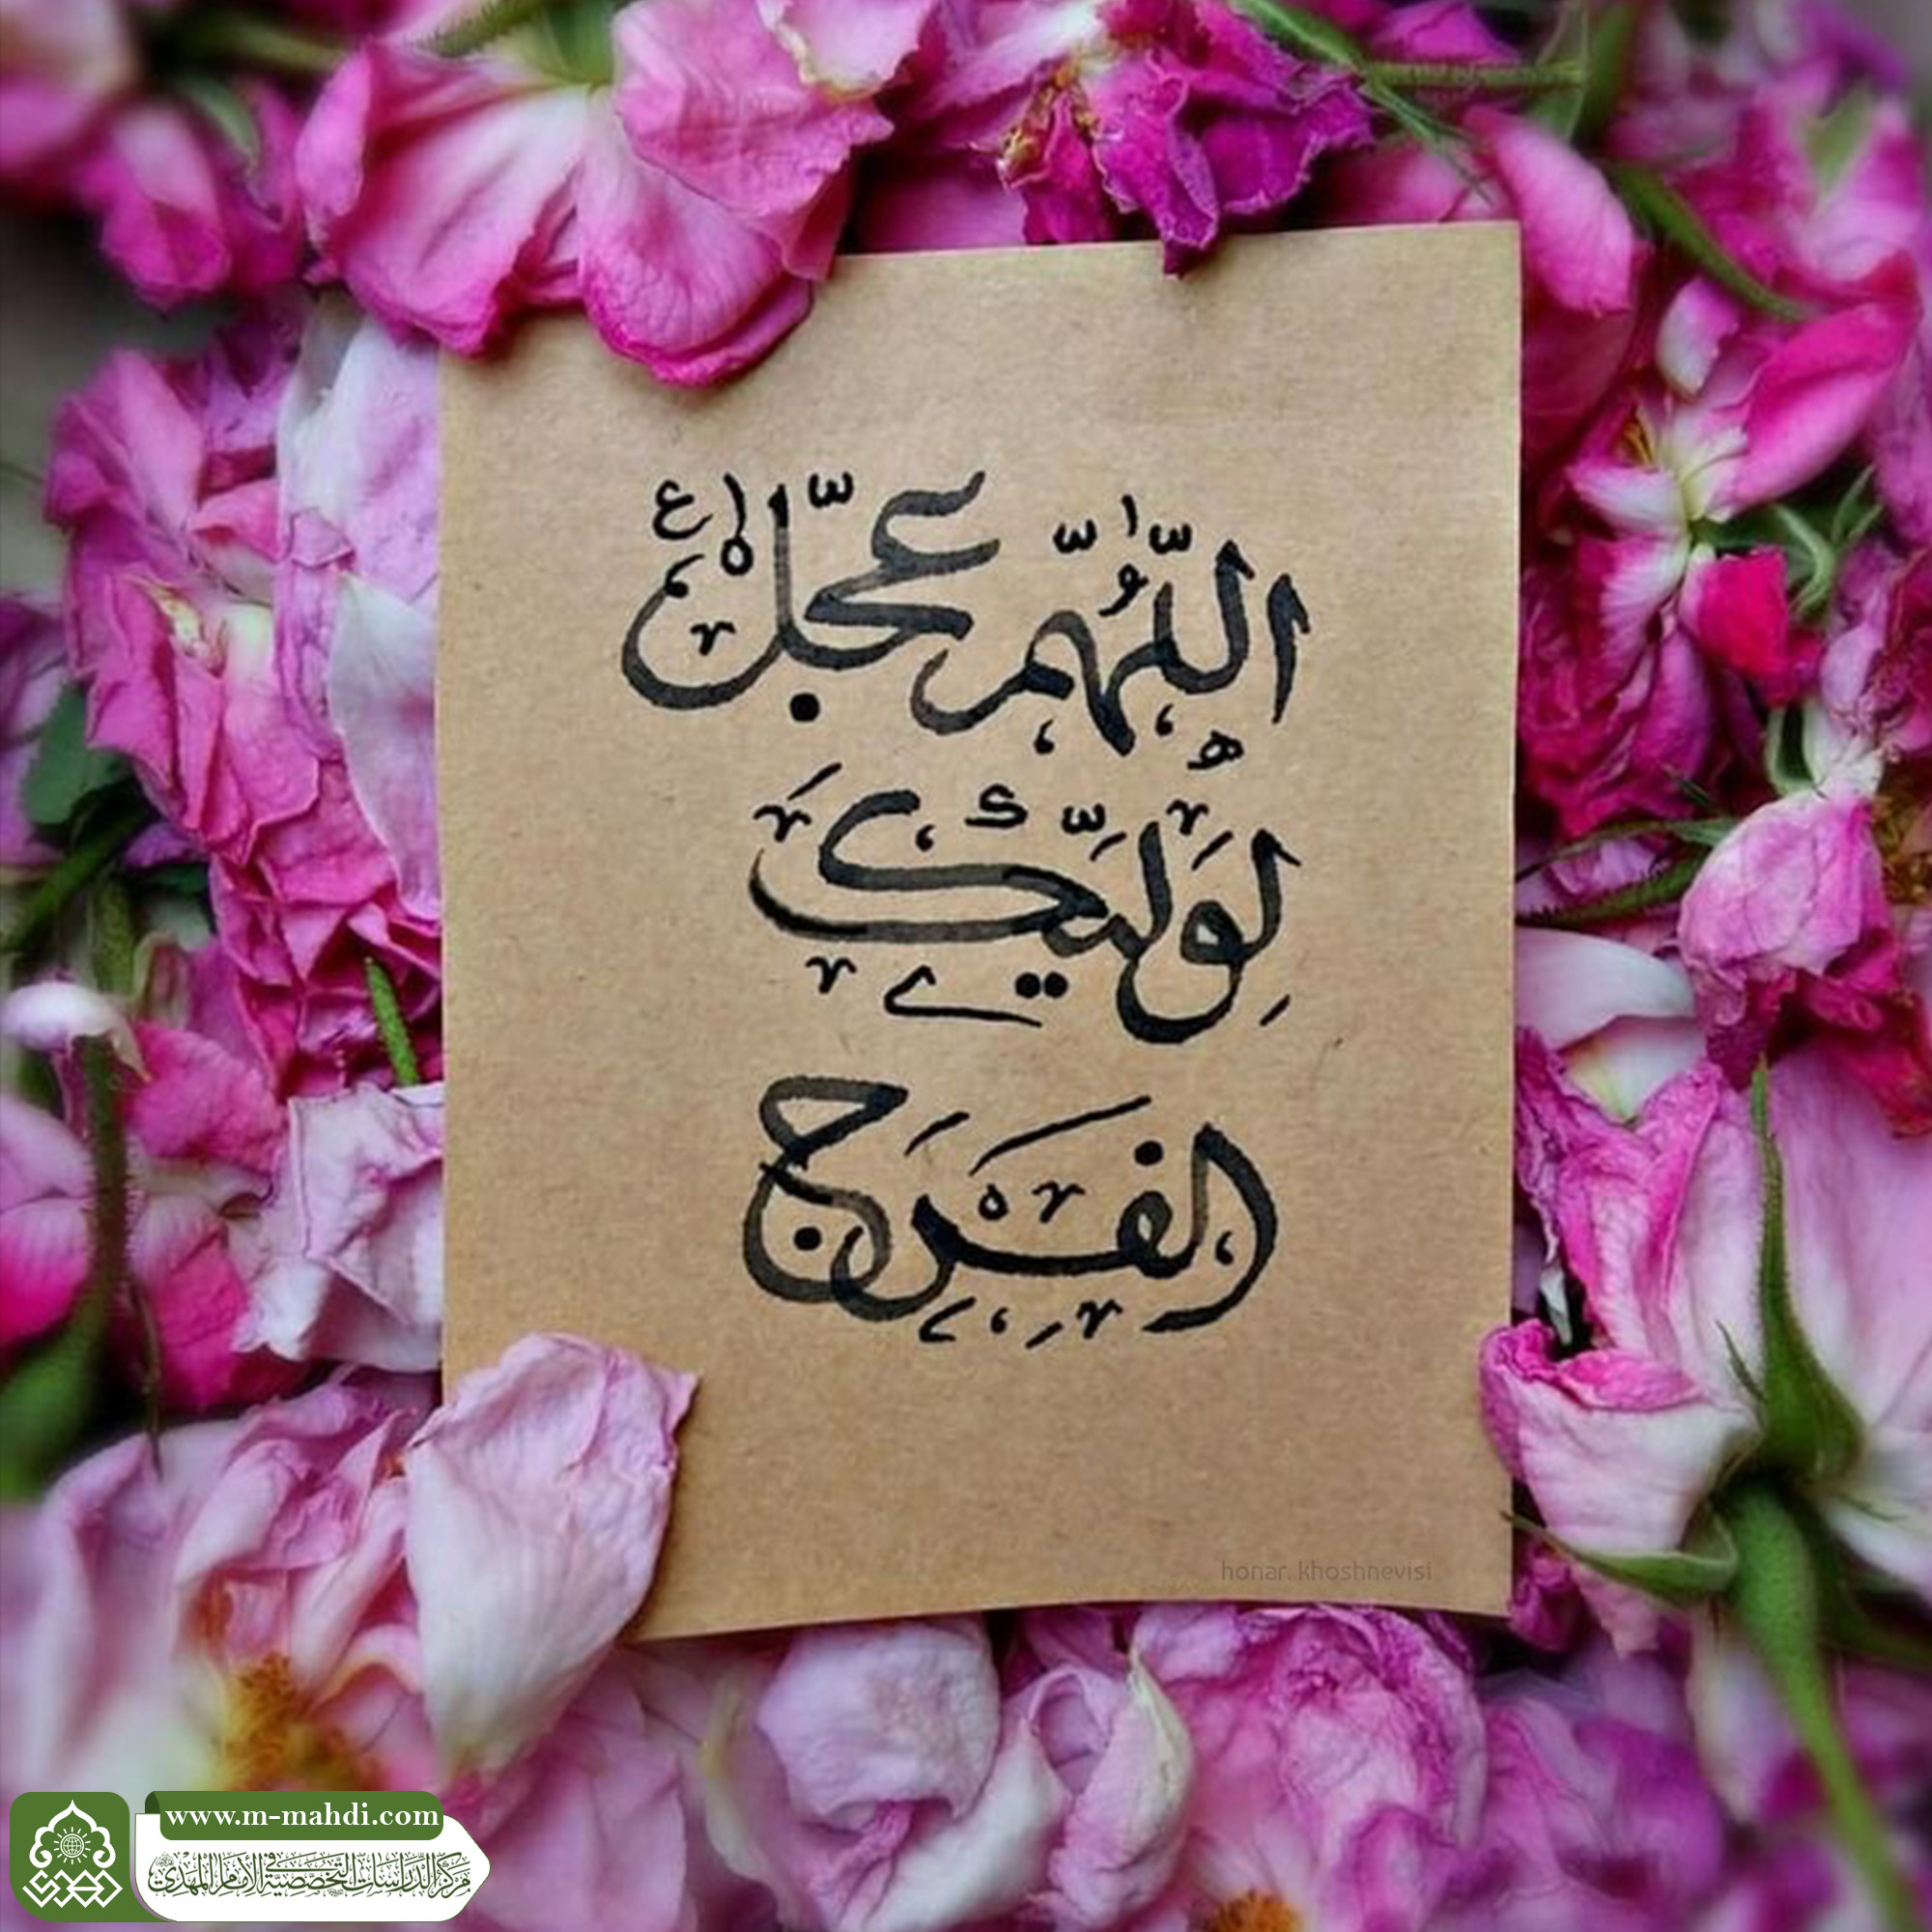 اللّٰهُمّ عجّل
لِوَليّك
الفَرَج
honar.khoshnevisi
www.m-mahdi.com
مركز الدراسات التخصصية في الإمام المهدي